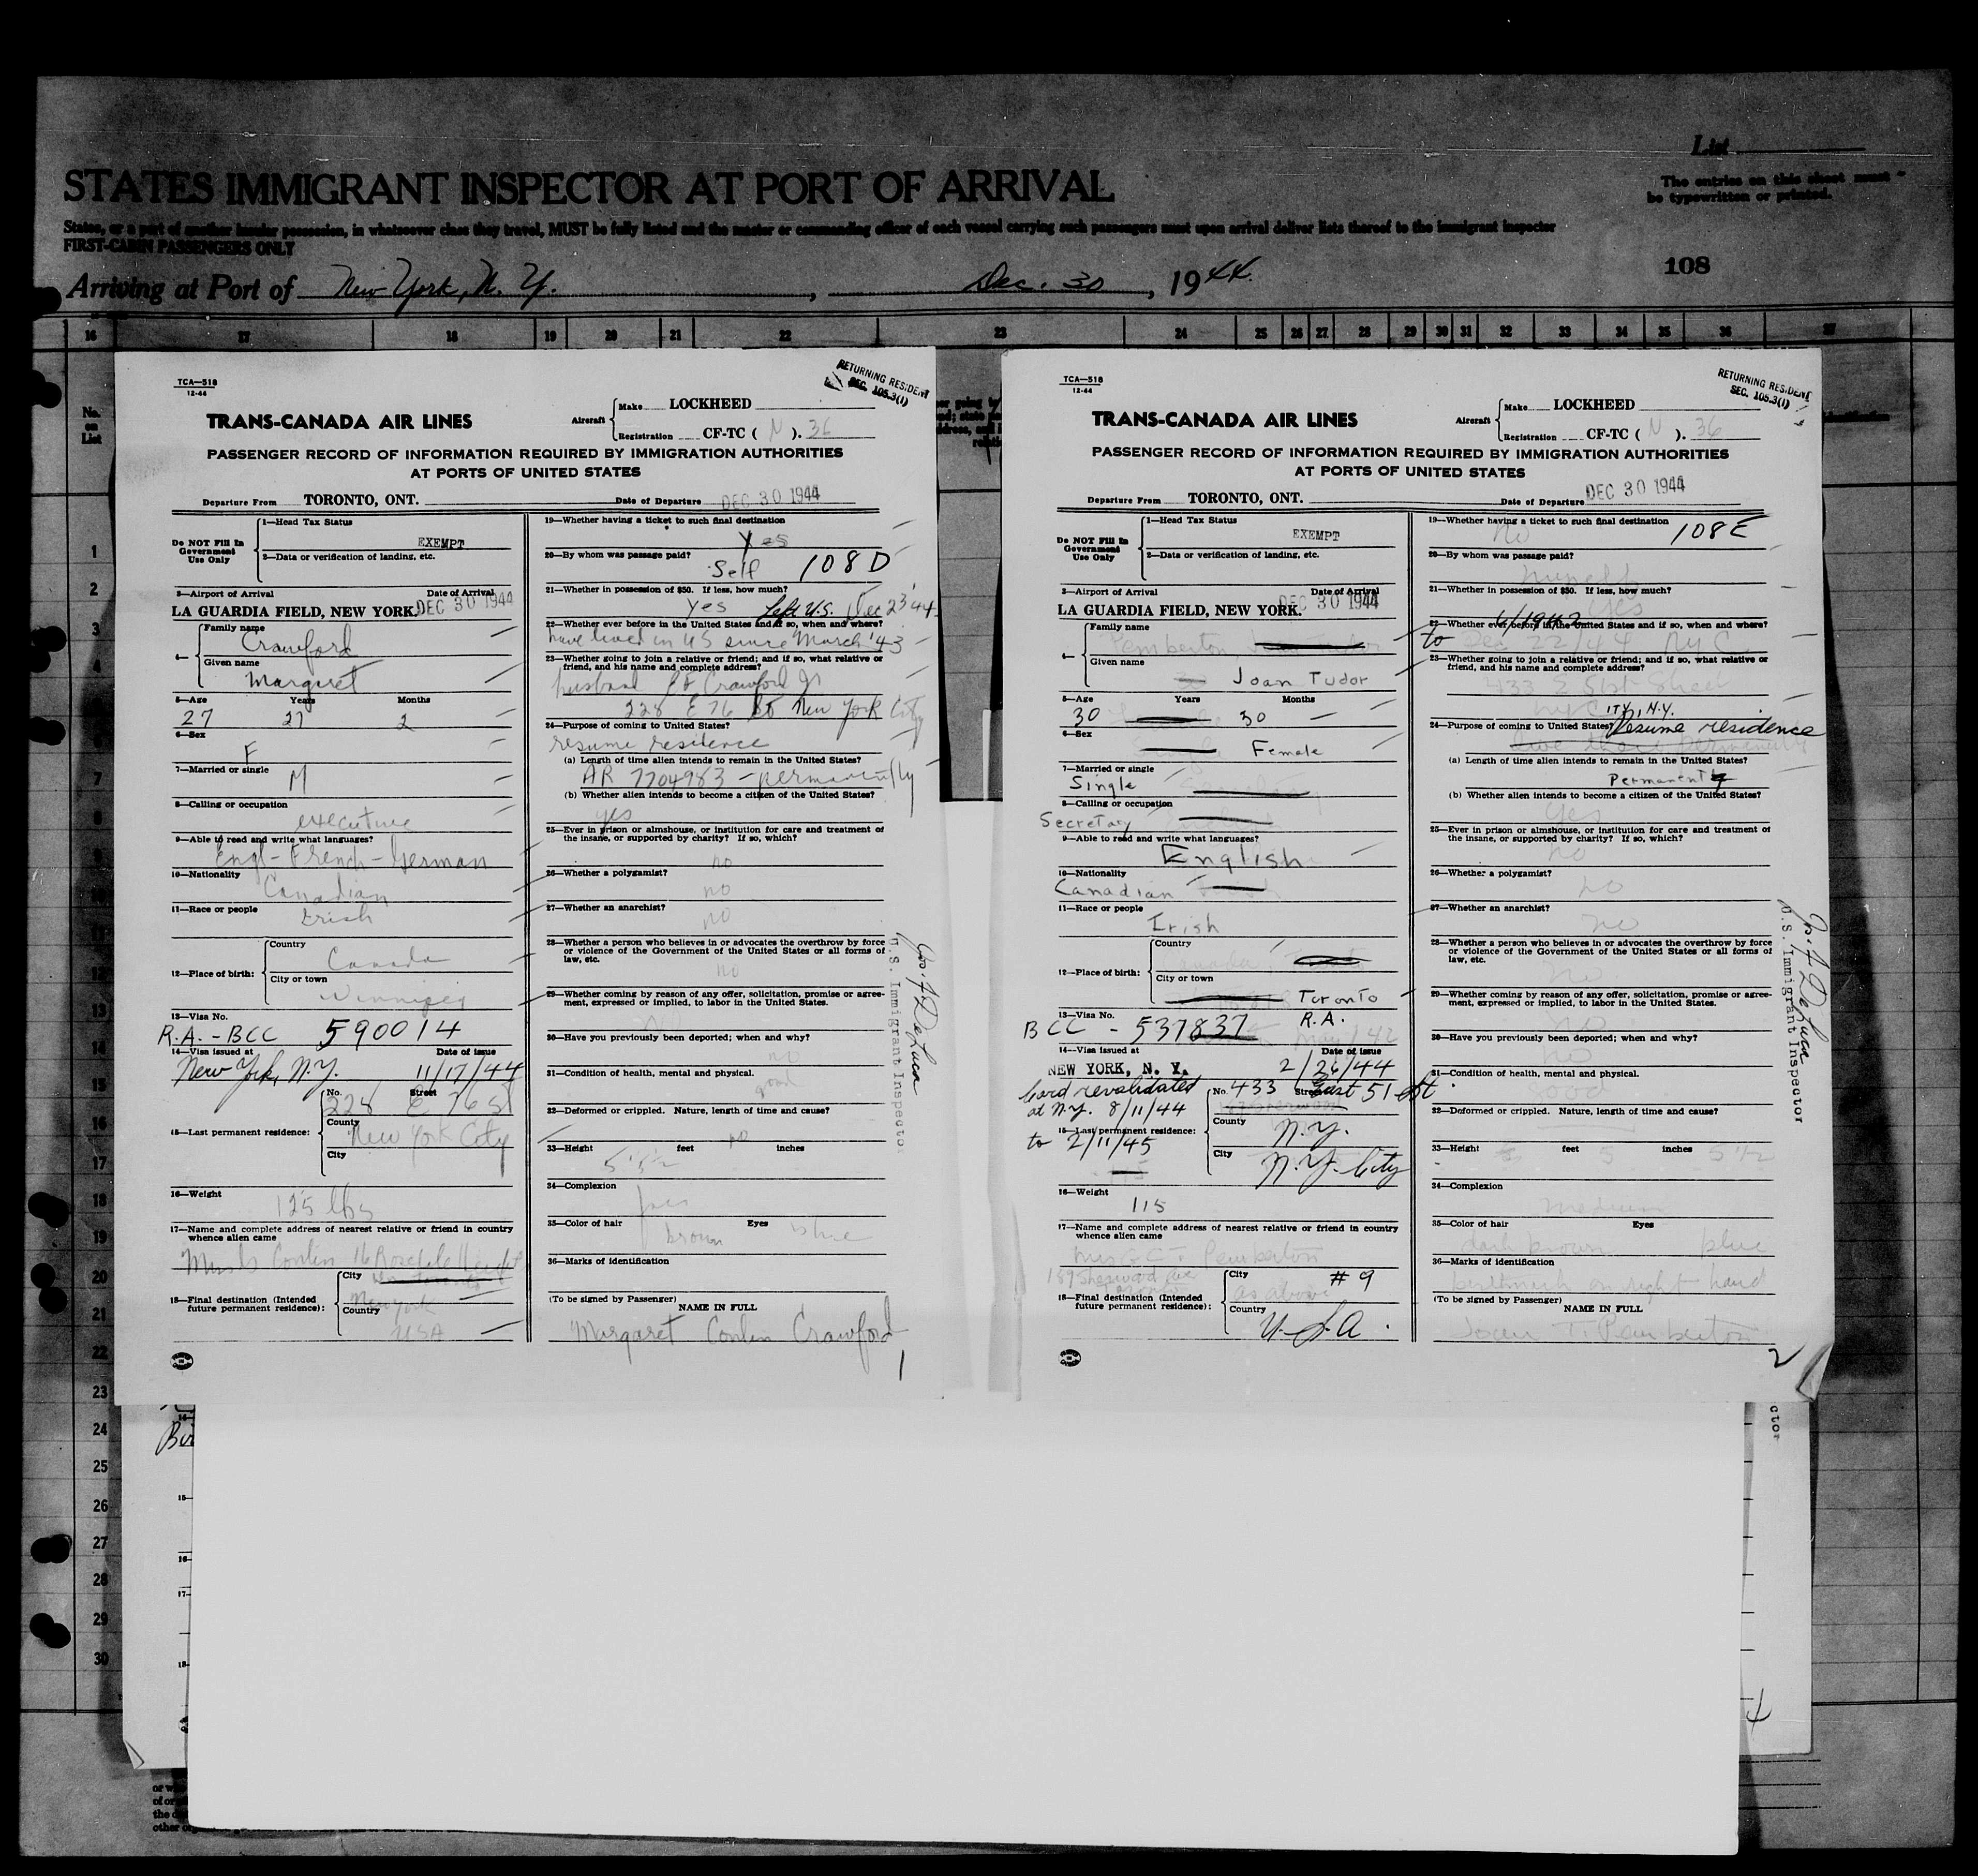 List
STATES IMMIGRANT INSPECTOR AT PORT OF ARRIVAL
The entries on this sheet must
be typewritten or printed.
States, or a part of another insular possession, in whatsoever class they travel, MUST be fully listed and the master or commanding officer of each vessel carrying such passengers must upon arrival deliver lists thereof to the immigrant inspector
FIRST-CABIN PASSENGERS ONLY
108
Arriving at Port of New York, N. Y. , Dec. 30 , 1944.
16 17 18 19 20 21 22 23 24 25 26 27 28 29 30 31 32 33 34 35 36 37
No. on List
1
2
3
4
5
6
7
8
9
10
11
12
13
14
15
16
17
18
19
20
21
22
23
24
25
26
27
28
29
30
TCA—518
12-44
RETURNING RESIDENT
SEC. 105.3(1)
TRANS-CANADA AIR LINES
Aircraft Make LOCKHEED
Registration CF-TC ( N ). 36
PASSENGER RECORD OF INFORMATION REQUIRED BY IMMIGRATION AUTHORITIES
AT PORTS OF UNITED STATES
Departure From TORONTO, ONT. Date of Departure DEC 30 1944
Do NOT Fill In
Government
Use Only
1—Head Tax Status
EXEMPT
2—Data or verification of landing, etc.
3—Airport of Arrival Date of Arrival
LA GUARDIA FIELD, NEW YORK. DEC 30 1944
4— Family name
Crawford
Given name
Margaret
5—Age Years Months
27 27 2
6—Sex
F
7—Married or single
M
8—Calling or occupation
executive
9—Able to read and write what languages?
Engl - French - German
10—Nationality
Canadian
11—Race or people
Irish
12—Place of birth:
Country
Canada
City or town
Winnipeg
13—Visa No.
R.A. - BCC 590014
14—Visa issued at Date of issue
New York, N.Y. 11/17/44
No. Street
228 E 76 St
15—Last permanent residence:
County
New York City
City
16—Weight
125 lbs
17—Name and complete address of nearest relative or friend in country
whence alien came
Conlin 16 Rosedale
18—Final destination (Intended
future permanent residence):
City
New York
Country
USA
19—Whether having a ticket to such final destination
Yes
20—By whom was passage paid?
Self 108 D
21—Whether in possession of $50. If less, how much?
Yes Left U.S. Dec 23 '44
22—Whether ever before in the United States and if so, when and where?
have lived in US since March '43
23—Whether going to join a relative or friend; and if so, what relative or
friend, and his name and complete address?
husband Crawford Jr
228 E 76 St New York City
24—Purpose of coming to United States?
resume residence
(a) Length of time alien intends to remain in the United States?
AR 7704983 - permanently
(b) Whether alien intends to become a citizen of the United States?
yes
25—Ever in prison or almshouse, or institution for care and treatment of
the insane, or supported by charity? If so, which?
no
26—Whether a polygamist?
no
27—Whether an anarchist?
no
28—Whether a person who believes in or advocates the overthrow by force
or violence of the Government of the United States or all forms of
law, etc.
no
29—Whether coming by reason of any offer, solicitation, promise or agree-
ment, expressed or implied, to labor in the United States.
no
30—Have you previously been deported; when and why?
no
31—Condition of health, mental and physical.
good
32—Deformed or crippled. Nature, length of time and cause?
no
33—Height feet inches
5' 5½
34—Complexion
35—Color of hair Eyes
brown blue
36—Marks of identification
(To be signed by Passenger)
NAME IN FULL
Margaret Conlin Crawford
1
Jos. A DeLuca
U.S. Immigrant Inspector
TCA—518
12-44
RETURNING RESIDENT
SEC. 105.3(1)
TRANS-CANADA AIR LINES
Aircraft Make LOCKHEED
Registration CF-TC ( N ). 36
PASSENGER RECORD OF INFORMATION REQUIRED BY IMMIGRATION AUTHORITIES
AT PORTS OF UNITED STATES
Departure From TORONTO, ONT. Date of Departure DEC 30 1944
Do NOT Fill In
Government
Use Only
1—Head Tax Status
EXEMPT
2—Data or verification of landing, etc.
3—Airport of Arrival Date of Arrival
LA GUARDIA FIELD, NEW YORK. DEC 30 1944
4— Family name
Pemberton
Given name
Joan Tudor
5—Age Years Months
30 30 —
6—Sex
Female
7—Married or single
Single
8—Calling or occupation
Secretary
9—Able to read and write what languages?
English
10—Nationality
Canadian
11—Race or people
Irish
12—Place of birth:
Country
Canada
City or town
Toronto
13—Visa No. R.A.
BCC - 537837
14—Visa issued at Date of issue
NEW YORK, N. Y. 2/26/44
Card revalidated
at N.Y. 8/11/44
to 2/11/45
No. 433 Street East 51 st
15—Last permanent residence:
County
N.Y.
City
N.Y. City
16—Weight
115
17—Name and complete address of nearest relative or friend in country
whence alien came
Mrs Pemberton
189 Sherwood Ave
Toronto
18—Final destination (Intended
future permanent residence):
City # 9
as above
Country
U.S.A.
19—Whether having a ticket to such final destination
No 108 E
20—By whom was passage paid?
myself
21—Whether in possession of $50. If less, how much?
yes
22—Whether ever before in the United States and if so, when and where?
to Dec 22/44 NYC
23—Whether going to join a relative or friend; and if so, what relative or
friend, and his name and complete address?
433 E 51st Street
ITY, N.Y.
24—Purpose of coming to United States? Resume residence
(a) Length of time alien intends to remain in the United States?
Permanently
(b) Whether alien intends to become a citizen of the United States?
Yes
25—Ever in prison or almshouse, or institution for care and treatment of
the insane, or supported by charity? If so, which?
no
26—Whether a polygamist?
no
27—Whether an anarchist?
no
28—Whether a person who believes in or advocates the overthrow by force
or violence of the Government of the United States or all forms of
law, etc.
no
29—Whether coming by reason of any offer, solicitation, promise or agree-
ment, expressed or implied, to labor in the United States.
no
30—Have you previously been deported; when and why?
no
31—Condition of health, mental and physical.
good
32—Deformed or crippled. Nature, length of time and cause?
33—Height feet inches
5 5½
34—Complexion
medium
35—Color of hair Eyes
dark brown blue
36—Marks of identification
birthmark on right hand
(To be signed by Passenger)
NAME IN FULL
Joan T. Pemberton
2
Jos. A DeLuca
U.S. Immigrant Inspector
ctor
4